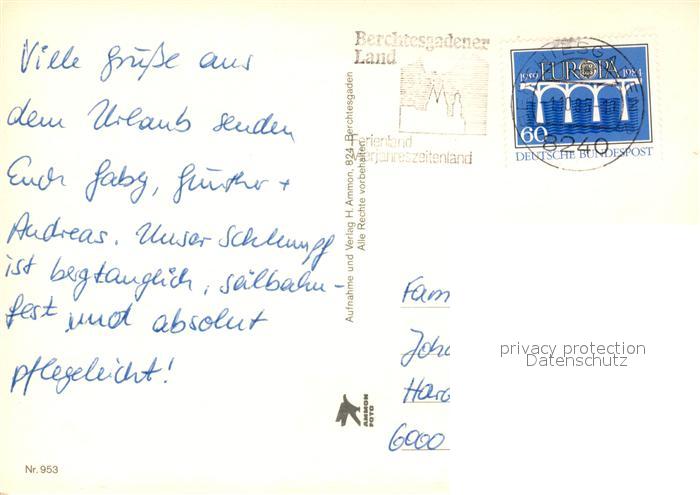 Viele Grüße aus
dem Urlaub senden
Euch Gaby, Günther +
Andreas. Unser Schlumpf
ist bergtauglich, seilbahn-
fest und absolut
pflegeleicht!
Nr. 953
Aufnahme und Verlag H. Ammon, 824 Berchtesgaden
Alle Rechte vorbehalten
AMMON
FOTO
Berchtesgadener
Land
erienland
erjahreszeitenland
1959 EUROPA 1984
60
DEUTSCHE BUNDESPOST
8240
Fam
Joha
Har
6000
privacy protection
Datenschutz